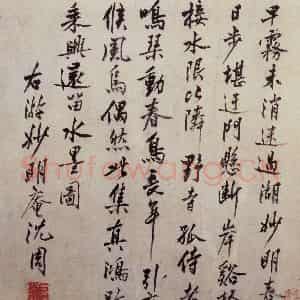 早霧未消湖妙明春
日步堪迂門懸斷岸谿
接水限比隣野寺孤侍者
鳴琴動春鳥長年引
候風烏偶然此集真鴻
乘興還留水墨圖
右游妙明庵沈周
Shufawang.CN